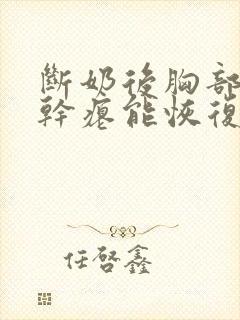 斷奶後胸部
幹癟能恢復
任啓鑫